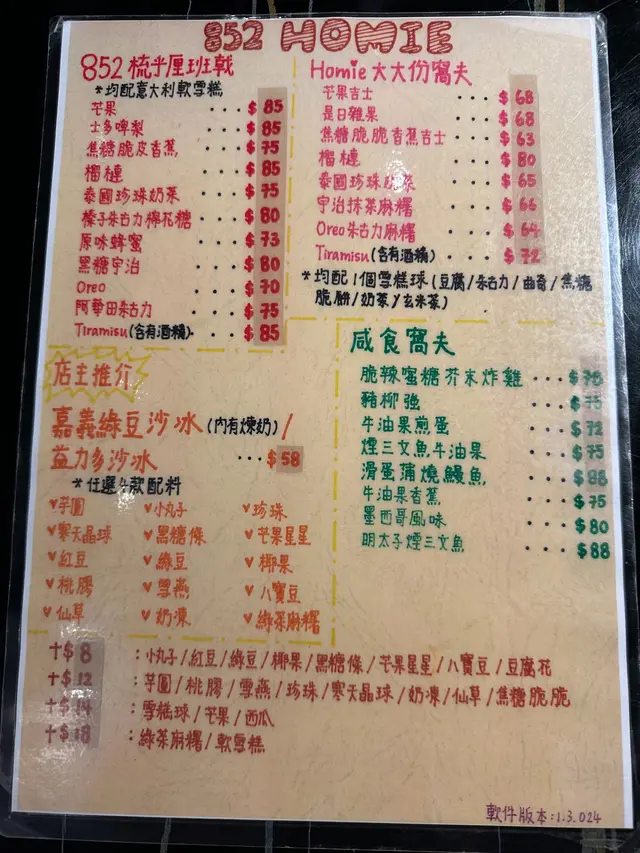 852 HOMIE
852 梳乎厘班戟
*均配意大利軟雪糕
芒果 ... $85
士多啤梨 ... $85
焦糖脆皮香蕉 ... $75
榴槤 ... $85
泰國珍珠奶茶 ... $75
榛子朱古力棉花糖 ... $80
原味蜂蜜 ... $73
黑糖宇治 ... $80
Oreo ... $70
阿華田朱古力 ... $75
Tiramisu(含有酒精) ... $85
Homie 大大份窩夫
芒果吉士 ... $68
是日雜果 ... $68
焦糖脆脆香蕉吉士 ... $63
榴槤 ... $80
泰國珍珠奶茶 ... $65
宇治抹茶麻糬 ... $66
Oreo朱古力麻糬 ... $64
Tiramisu(含有酒精) ... $72
*均配1個雪糕球(豆腐/朱古力/曲奇/焦糖
脆餅/奶茶/玄米茶)
店主推介
嘉義綠豆沙冰(內有煉奶)/
益力多沙冰 ... $58
*任選4款配料
♥芋圓 ♥小丸子 ♥珍珠
♥寒天晶球 ♥黑糖條 ♥芒果星星
♥紅豆 ♥綠豆 ♥椰果
♥桃膠 ♥雪燕 ♥八寶豆
♥仙草 ♥奶凍 ♥綠茶麻糬
咸食窩夫
脆辣蜜糖芥末炸雞 ... $78
豬柳強 ... $75
牛油果煎蛋 ... $72
煙三文魚牛油果 ... $75
滑蛋蒲燒鰻魚 ... $88
牛油果香蕉 ... $75
墨西哥風味 ... $80
明太子煙三文魚 ... $88
+$8 :小丸子/紅豆/綠豆/椰果/黑糖條/芒果星星/八寶豆/豆腐花
+$12 :芋圓/桃膠/雪燕/珍珠/寒天晶球/奶凍/仙草/焦糖脆脆
+$14 :雪糕球/芒果/西瓜
+$18 :綠茶麻糬/軟雪糕
軟件版本:1.3.024